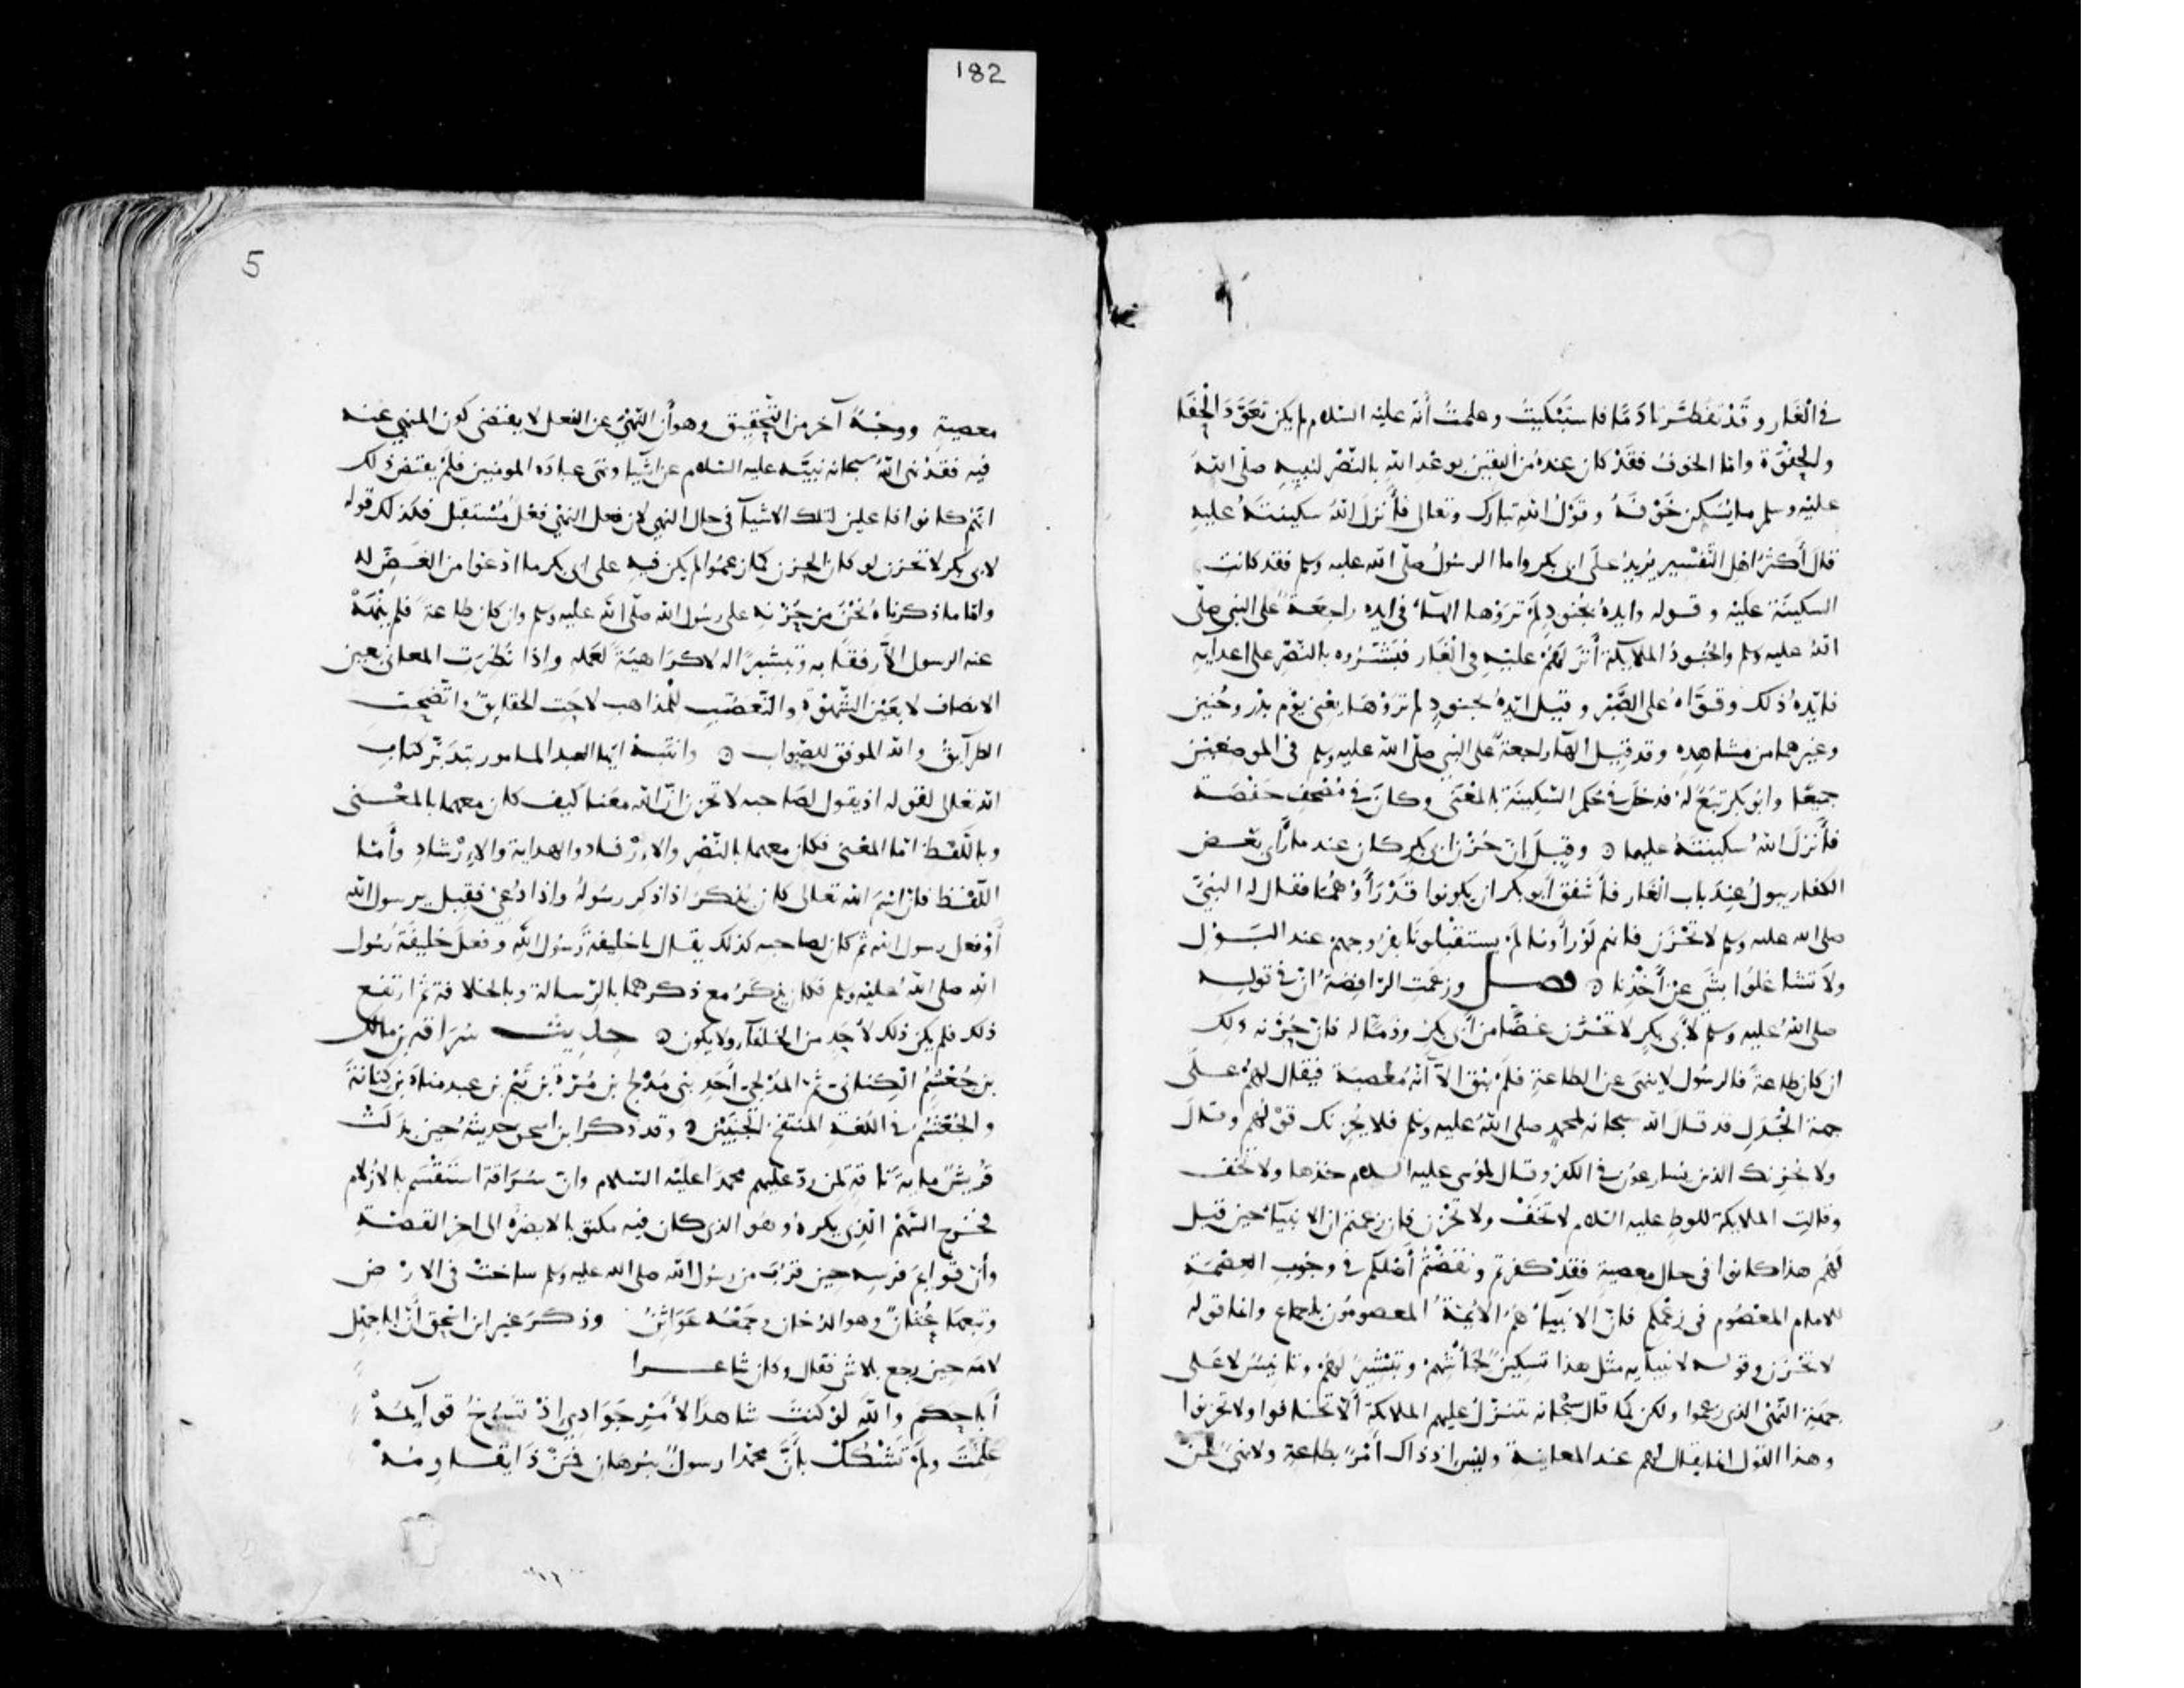 182
في الغار وقد تفطرتا دما فاستبكيت وعلمت أنه عليه السلام لم يكن تعود الحفا
والجفوة واما الخوف فقد كان عنده من اليقين بوعد الله بالنصر لنبيه صلى الله
عليه وسلم ما يسكن خوفه وقول الله تبارك وتعالى فأنزل الله سكينته عليه
قال أكثر اهل التفسير يريد على ابي بكر واما الرسول صلى الله عليه وسلم فقد كانت
السكينة عليه وقوله وايده بجنود لم تروها الهآء في ايده راجعة على النبي صلى
الله عليه وسلم والجنود الملايكة أنزلهم عليه في الغار فبشروه بالنصر على اعدايه
فايده ذلك وقواه على الصبر وقيل ايده بجنود لم تروها يعني يوم بدر وحنين
وغيرهما من مشاهده وقد قيل الهآء راجعة على النبي صلى الله عليه وسلم في الموضعين
جميعا وابو بكر تبع له فدخل في حكم السكينة بالمعنى وكان في مصحف حفصة
فأنزل الله سكينته عليهما ٥ وقيل ان حزن ابي بكر كان عند ما رأى بعض
الكفار يبول عند باب الغار فأشفق أبو بكر ان يكونوا قد رأوهما فقال له النبي
صلى الله عليه وسلم لا تحزن فانهم لو رأونا لم يستقبلونا بفروجهم عند البول
ولا تشاغلوا بشى عن أخذنا ٥ فصل وزعمت الرافضة ان في قوله
صلى الله عليه وسلم لأبي بكر لا تحزن غضا من أبي بكر وذما له فان حزنه ذلك
ان كان طاعة فالرسول لا ينهى عن الطاعة فلم يبق الا أنه معصية فيقال لهم على
جهة الجدل قد قال الله سبحانه لمحمد صلى الله عليه وسلم فلا يحزنك قولهم وقال
ولا يحزنك الذين يسارعون في الكفر وقال لموسى عليه السلام خذها ولا تخف
وقالت الملايكة للوط عليه السلام لا تخف ولا تحزن فان زعمتم ان الانبيآء حين قيل
لهم هذا كانوا في حال معصية فقد كفرتم ونقضتم أصلكم في وجوب العصمة
للامام المعصوم في زعمكم فان الانبيآء هم الائمة المعصومون باجماع وانما قوله
لا تحزن وقوله لانبيآيه مثل هذا تسكين لجأشهم وتبشير لهم وتانيس لا على
جهة النهي الذي زعموا ولكن كما قال سبحانه تتنزل عليهم الملايكة ألا تخافوا ولا تحزنوا
وهذا القول انما يقال لهم عند المعاينة وليس اذ ذاك أمر بطاعة ولا نهي عن
5
معصية ووجه آخر من التحقيق وهو أن النهي عن الفعل لا يقتضى كون المنهي عنه
فيه فقد نهى الله سبحانه نبيه عليه السلام عن اشيآ ونهى عباده المومنين فلم يقتض ذلك
انهم كانوا فاعلين لتلك الاشيآ في حال النهي لان فعل النهي فعل مستقبل فكذلك قوله
لابي بكر لا تحزن لو كان الحزن كما زعموا لم يكن فيه على ابي بكر ما ادعوا من الغض له
واما ما ذكرناه نحن من حزنه على رسول الله صلى الله عليه وسلم وان كان طاعة فلم ينهه
عنه الرسول الا رفقا به وتبشيرا له لا كراهية لعمله واذا نظرت المعاني بعين
الانصاف لا بعين الشهوة والتعصب للمذاهب لاحت الحقايق واتضحت
الطرآيق والله الموفق للصواب ٥ وانتبه ايها العبد المامور بتدبر كتاب
الله تعالى لقوله اذ يقول لصاحبه لا تحزن ان الله معنا كيف كان معهما بالمعنى
وباللفظ اما المعنى فكان معهما بالنصر والارفاد والهداية والارشاد وأما
اللفظ فان اسم الله تعالى كان يذكر اذا ذكر رسوله واذا دعي فقيل يرسول الله
أو فعل رسول الله ثم كان لصاحبه كذلك يقال يا خليفة رسول الله وفعل خليفة رسول
الله صلى الله عليه وسلم فكان يذكر مع ذكرهما بالرسالة وبالخلافة ثم ارتفع
ذلك فلم يكن ذلك لأحد من الخلفآء ولا يكون ٥ حديث سراقة بن مالك
بن جعشم الكناني ثم المدلجي أحد بني مدلج بن مرة بن تيم بن عبد مناة بن كنانة
والجعشم في اللغة المنتفخ الجنبين ٥ وقد ذكر ابن اسحق حديثه حين بذلت
قريش ماية ناقة لمن رد عليهم محمدا عليه السلام وان سراقة استقسم بالأزلام
فخرج السهم الذي يكره وهو الذي كان فيه مكتوبا لا يضره الى اخر القصة
وأن قوايم فرسه حين قرب من رسول الله صلى الله عليه وسلم ساخت في الارض
وتبعها عثان وهو الدخان وجمعه عواثن وذكر غير ابن اسحق أن ابا جهل
لامه حين رجع بلا شى فقال وكان شاعرا
أبا حكم والله لو كنت شاهدا لأمر جوادي اذ تسوخ قوآيمه
علمت ولم تشكك بأن محمدا رسول ببرهان فمن ذا يقاومه